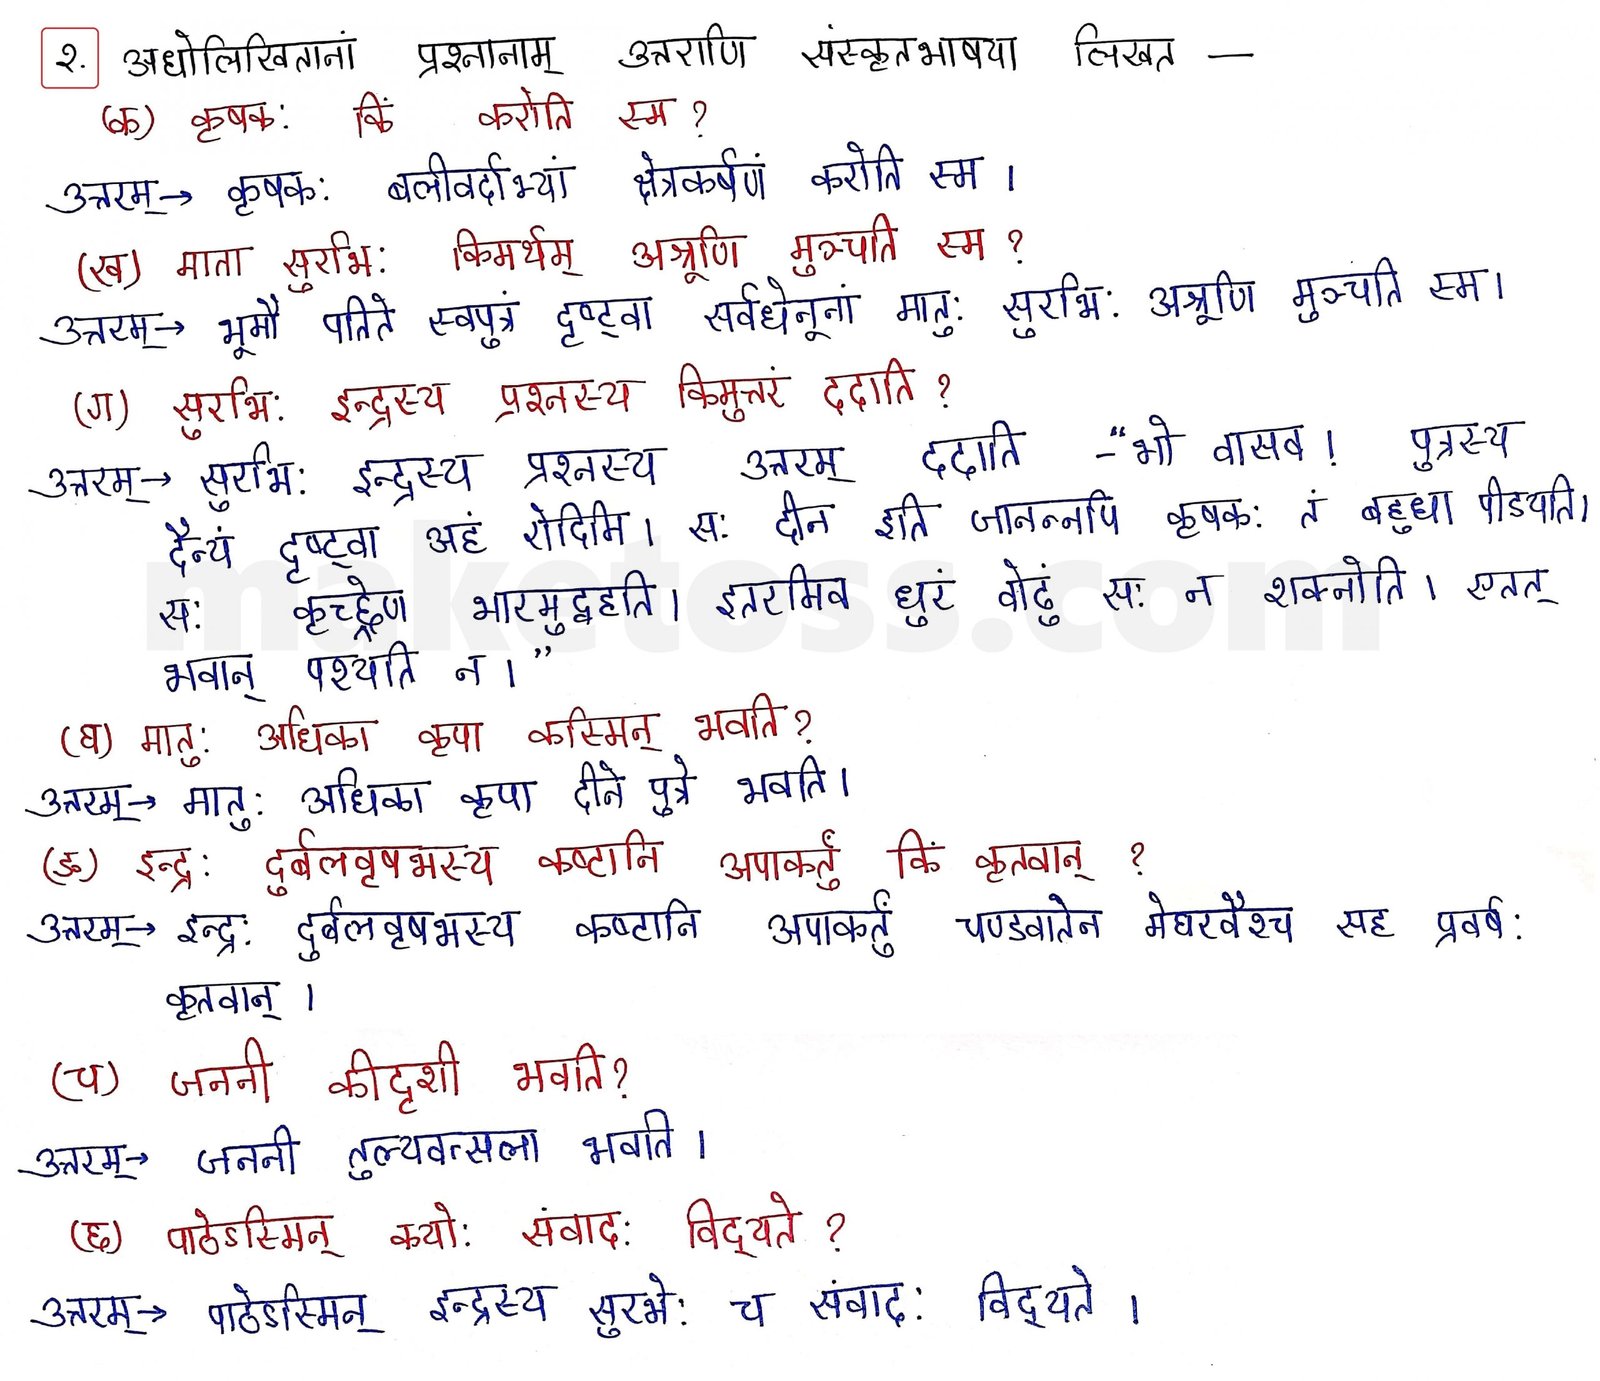 २. अधोलिखितानां प्रश्नानाम् उत्तराणि संस्कृतभाषया लिखत —
(क) कृषकः किं करोति स्म ?
उत्तरम्→ कृषकः बलीवर्दाभ्यां क्षेत्रकर्षणं करोति स्म ।
(ख) माता सुरभिः किमर्थम् अश्रूणि मुञ्चति स्म ?
उत्तरम्→ भूमौ पतिते स्वपुत्रं दृष्ट्वा सर्वधेनूनां मातुः सुरभिः अश्रूणि मुञ्चति स्म।
(ग) सुरभिः इन्द्रस्य प्रश्नस्य किमुत्तरं ददाति ?
उत्तरम्→ सुरभिः इन्द्रस्य प्रश्नस्य उत्तरम् ददाति -“भो वासव ! पुत्रस्य
दैन्यं दृष्ट्वा अहं रोदिमि । सः दीन इति जानन्नपि कृषकः तं बहुधा पीडयति।
सः कृच्छ्रेण भारमुद्वहति । इतरमिव धुरं वोढुं सः न शक्नोति । एतत्
भवान् पश्यति न ।”
maketoss.com
(घ) मातुः अधिका कृपा कस्मिन् भवति ?
उत्तरम्→ मातुः अधिका कृपा दीने पुत्रे भवति ।
(ङ) इन्द्रः दुर्बलवृषभस्य कष्टानि अपाकर्तुं किं कृतवान् ?
उत्तरम्→ इन्द्रः दुर्बलवृषभस्य कष्टानि अपाकर्तुं चण्डवातेन मेघरवैश्च सह प्रवर्षः
कृतवान् ।
(च) जननी कीदृशी भवति ?
उत्तरम्→ जननी तुल्यवत्सला भवति ।
(छ) पाठेऽस्मिन् कयोः संवादः विद्यते ?
उत्तरम्→ पाठेऽस्मिन् इन्द्रस्य सुरभेः च संवादः विद्यते ।